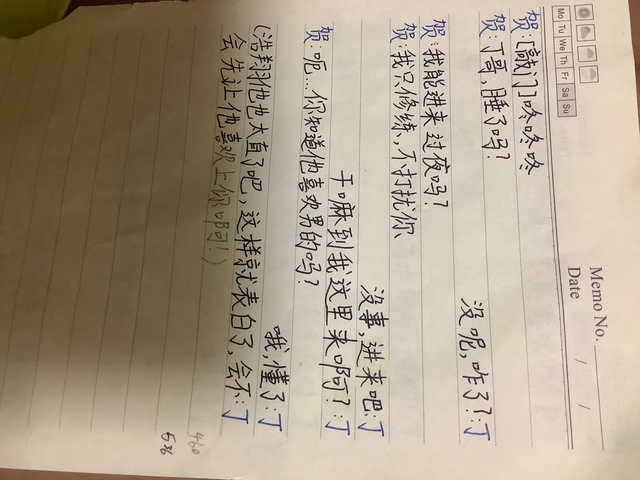 Memo No.
Date / /
Mo Tu We Th Fr Sa Su
贺:[敲门]咚咚咚
贺:丁哥,睡了吗?
没呢,咋了?:丁
贺:我能进来过夜吗?
贺:我只修练,不打扰你
没事,进来吧:丁
干嘛到我这里来啊?:丁
贺:呃…你知道他喜欢男的吗?
哦,懂了:丁
(浩翔他也太直了吧,这样就表白了,会不:丁
会先让他喜欢上你啊!)
460